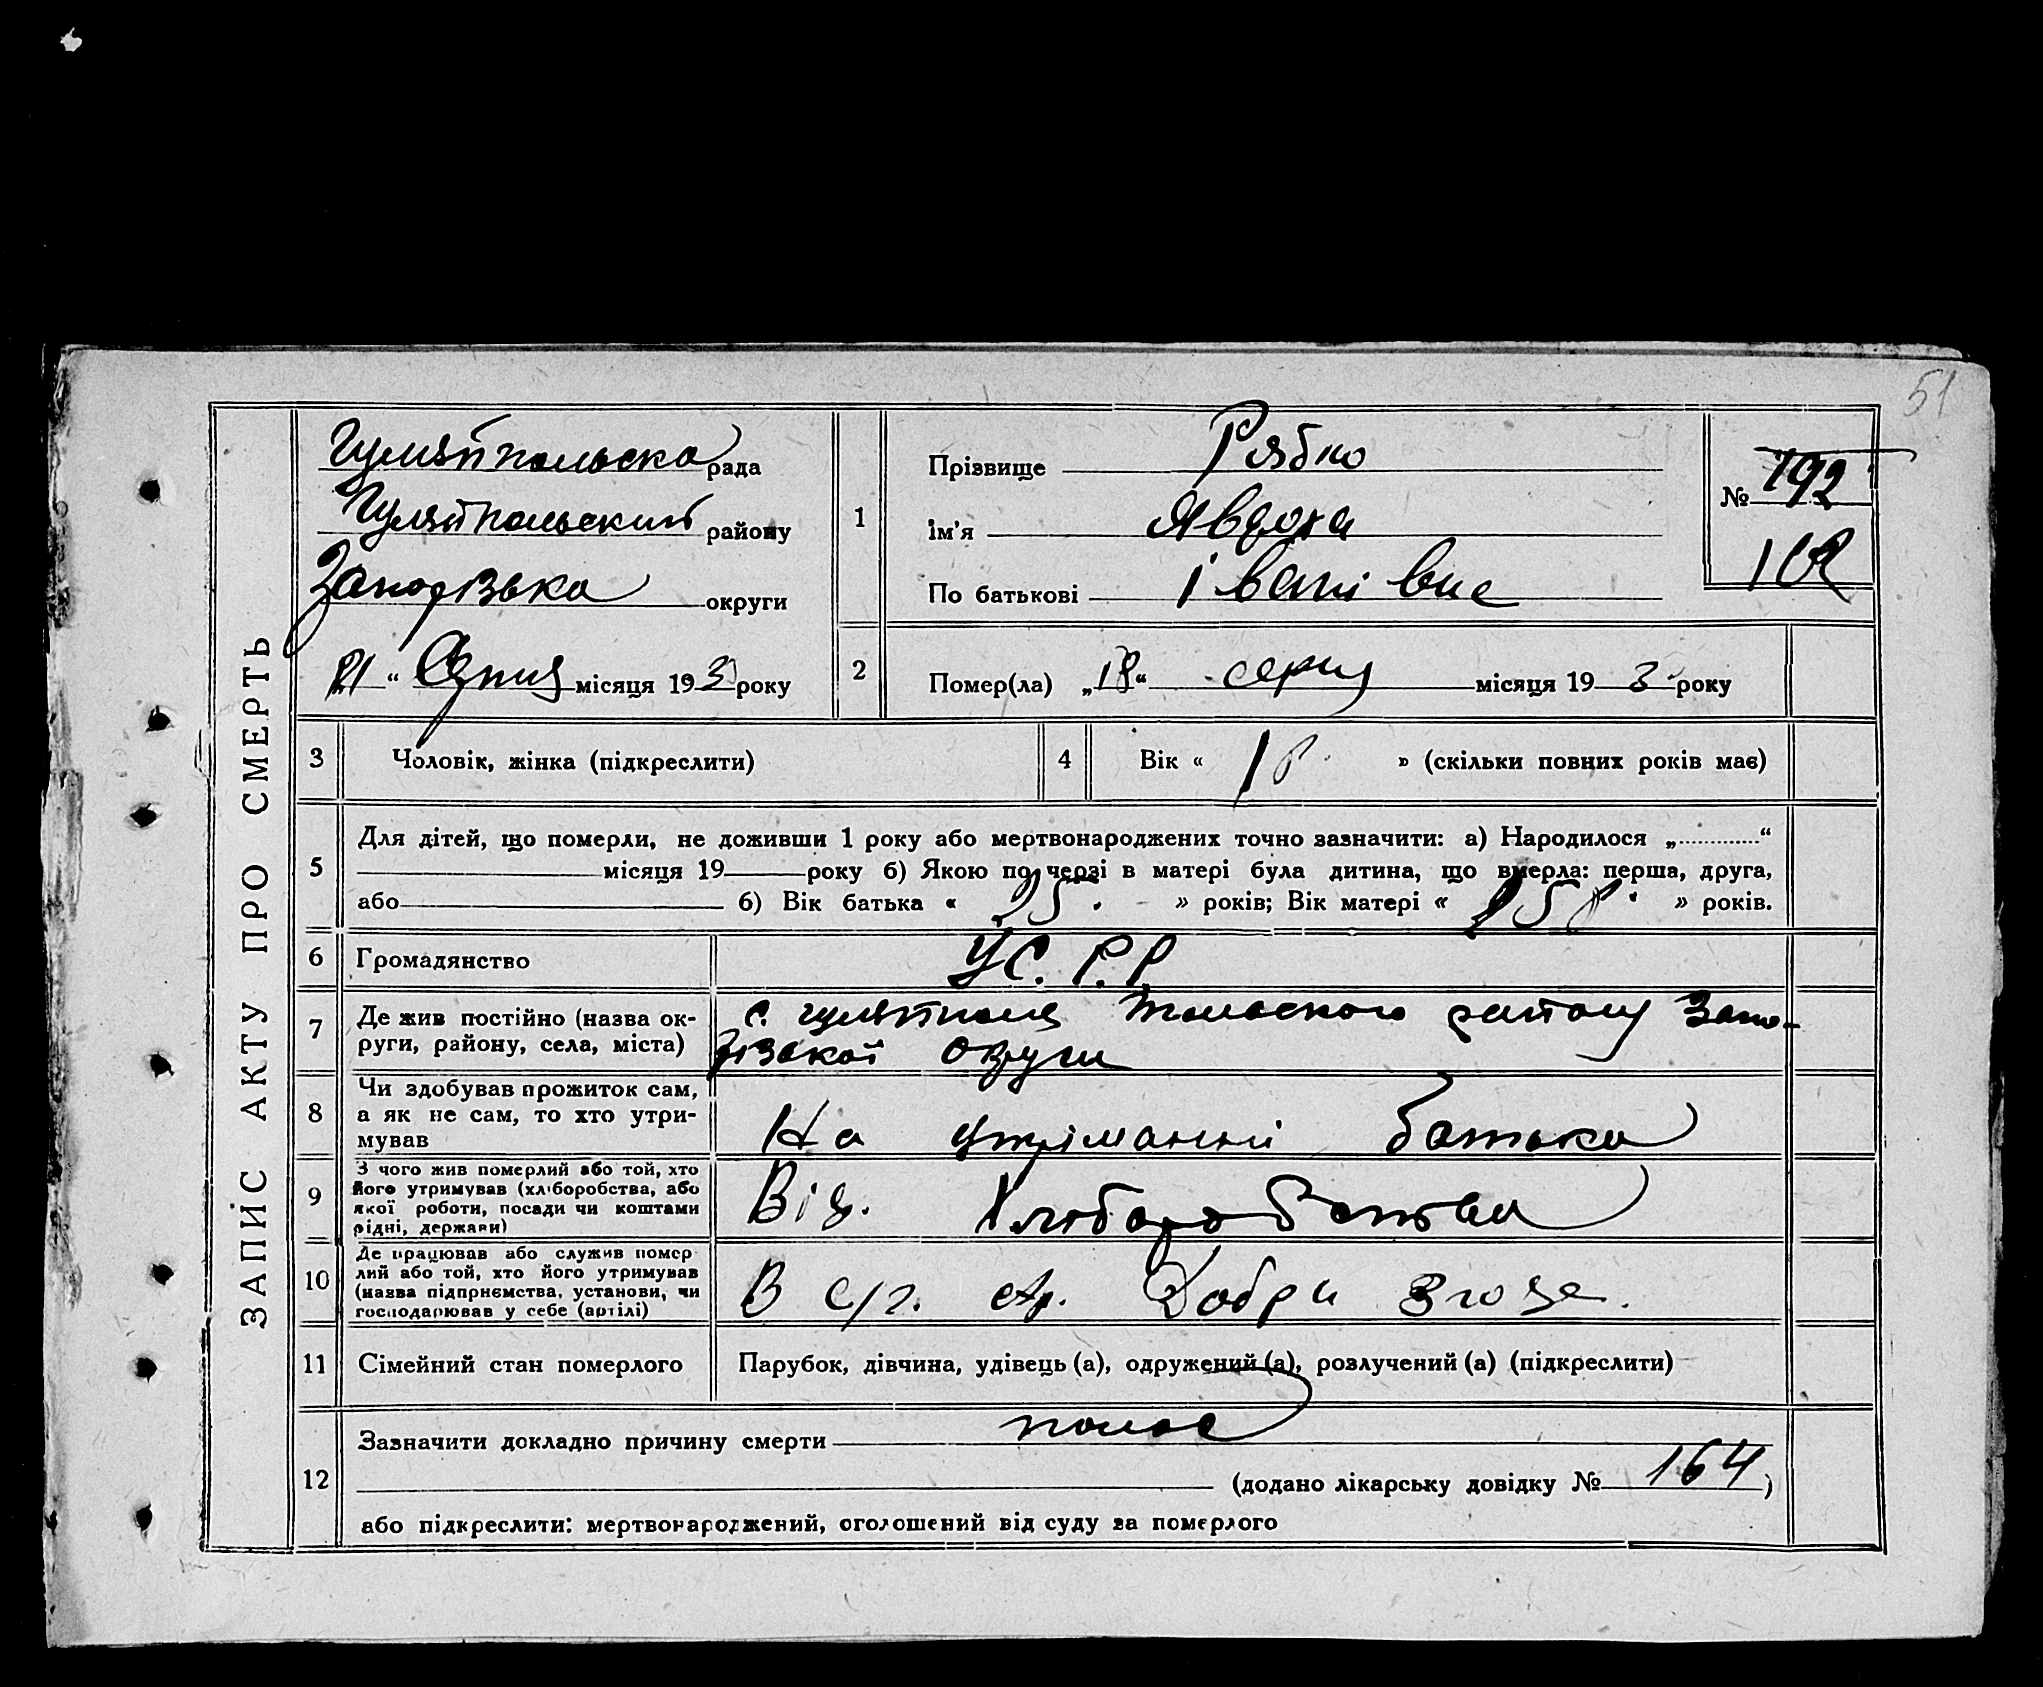 51
ЗАПИС АКТУ ПРО СМЕРТЬ
Гуляйпольська рада
Гуляйпольский району
Запорізька округи
21 “ Серпня місяця 193 року
1
Прізвище Рябко
Ім'я Явдоха
По батькові Іванівна
№ 192
102
2
Помер(ла) „18“ серпня місяця 19 3 року
3 Чоловік, жінка (підкреслити)
4 Вік « 1 р. » (скільки повних років має)
5
Для дітей, що померли, не доживши 1 року або мертвонароджених точно зазначити: а) Народилося „ “
місяця 19 року б) Якою по черзі в матері була дитина, що вмерла: перша, друга,
або б) Вік батька « 25. » років; Вік матері « 25 р. » років.
6 Громадянство УС.Р.Р.
7 Де жив постійно (назва ок-
руги, району, села, міста)
с. Гуляйполя району Запо-
різької Округи
8 Чи здобував прожиток сам,
а як не сам, то хто утри-
мував
На утріманні батька
9 З чого жив померлий або той, хто
його утримував (хліборобства, або
якої роботи, посади чи коштами
рідні, держави)
Від. Хлюборобства
10 Де працював або служив помер
лий або той, хто його утримував
(назва підприємства, установи, чи
господарював у себе (артілі)
В с/г. ар. Добра Згода.
11 Сімейний стан померлого Парубок, дівчина, удівець (а), одружений (а), розлучений (а) (підкреслити)
12
Зазначити докладно причину смерти понос
(додано лікарську довідку № 164)
або підкреслити: мертвонароджений, оголошений від суду за померлого